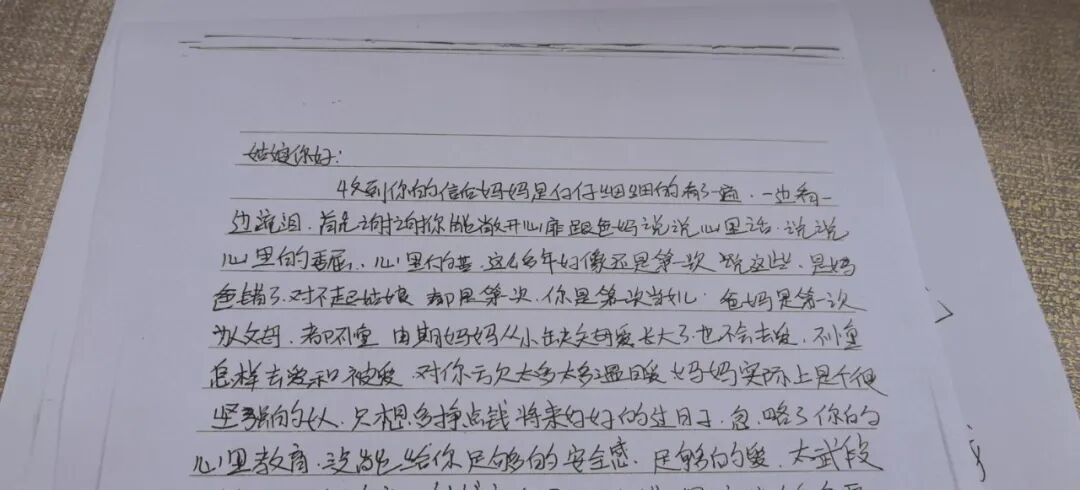 姑娘你好:
收到你的信后妈妈是仔仔细细的看了一遍.一边看一
边流泪.首先谢谢你能敞开心扉跟爸妈说说心里话.说说
心里的委屈.心里的苦.这么多年好像还是第一次说这些.是妈
爸错了.对不起姑娘 都是第一次.你是第一次当儿.爸妈是第一次
为父母.都不懂 妈妈从小缺父母爱长大了也不会去爱.不懂
怎样去爱和被爱.对你亏欠太多太多 妈妈实际上是个很
坚强的人.只想多挣点钱将来好好的过日子.忽略了你的
心里教育.没能给你足够的安全感.足够的爱.太武段